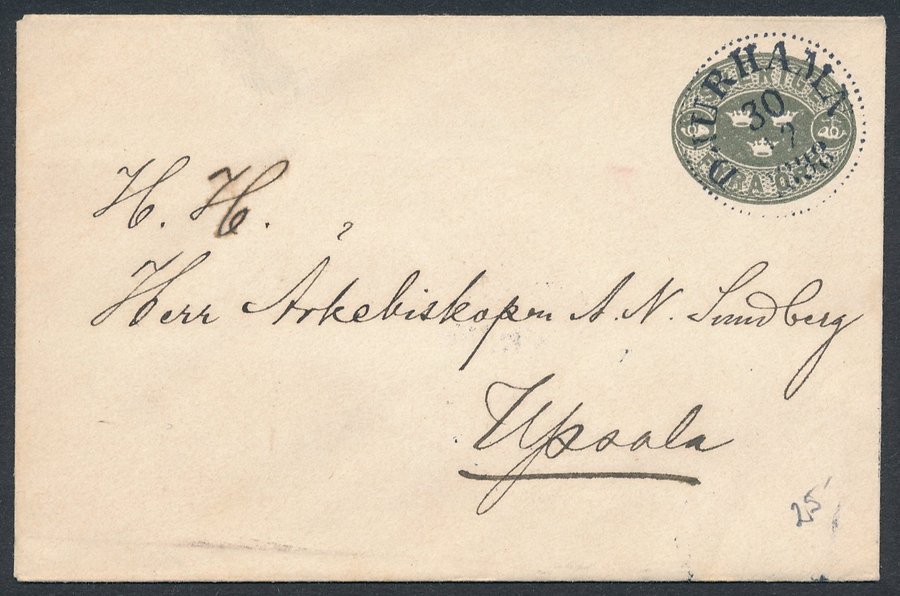 DJURHAMN
30
1888
SVERIGE
H. H.
Herr Ärkebiskopen A. N. Sundberg
Upsala
25